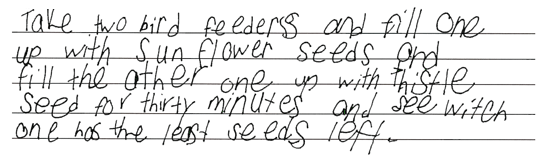 Take two bird feeders and fill one
up with Sunflower seeds and
fill the other one up with thistle
Seed for thirty minutes and see witch
one has the least seeds left.